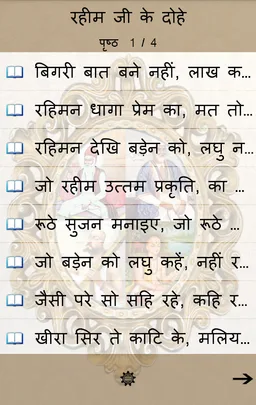 रहीम जी के दोहे
पृष्ठ 1 / 4
बिगरी बात बने नहीं, लाख क...
रहिमन धागा प्रेम का, मत तो...
रहिमन देखि बड़ेन को, लघु न...
जो रहीम उत्तम प्रकृति, का ...
रूठे सुजन मनाइए, जो रूठे ...
जो बड़ेन को लघु कहें, नहीं र...
जैसी परे सो सहि रहे, कहि र...
खीरा सिर ते काटि के, मलिय...